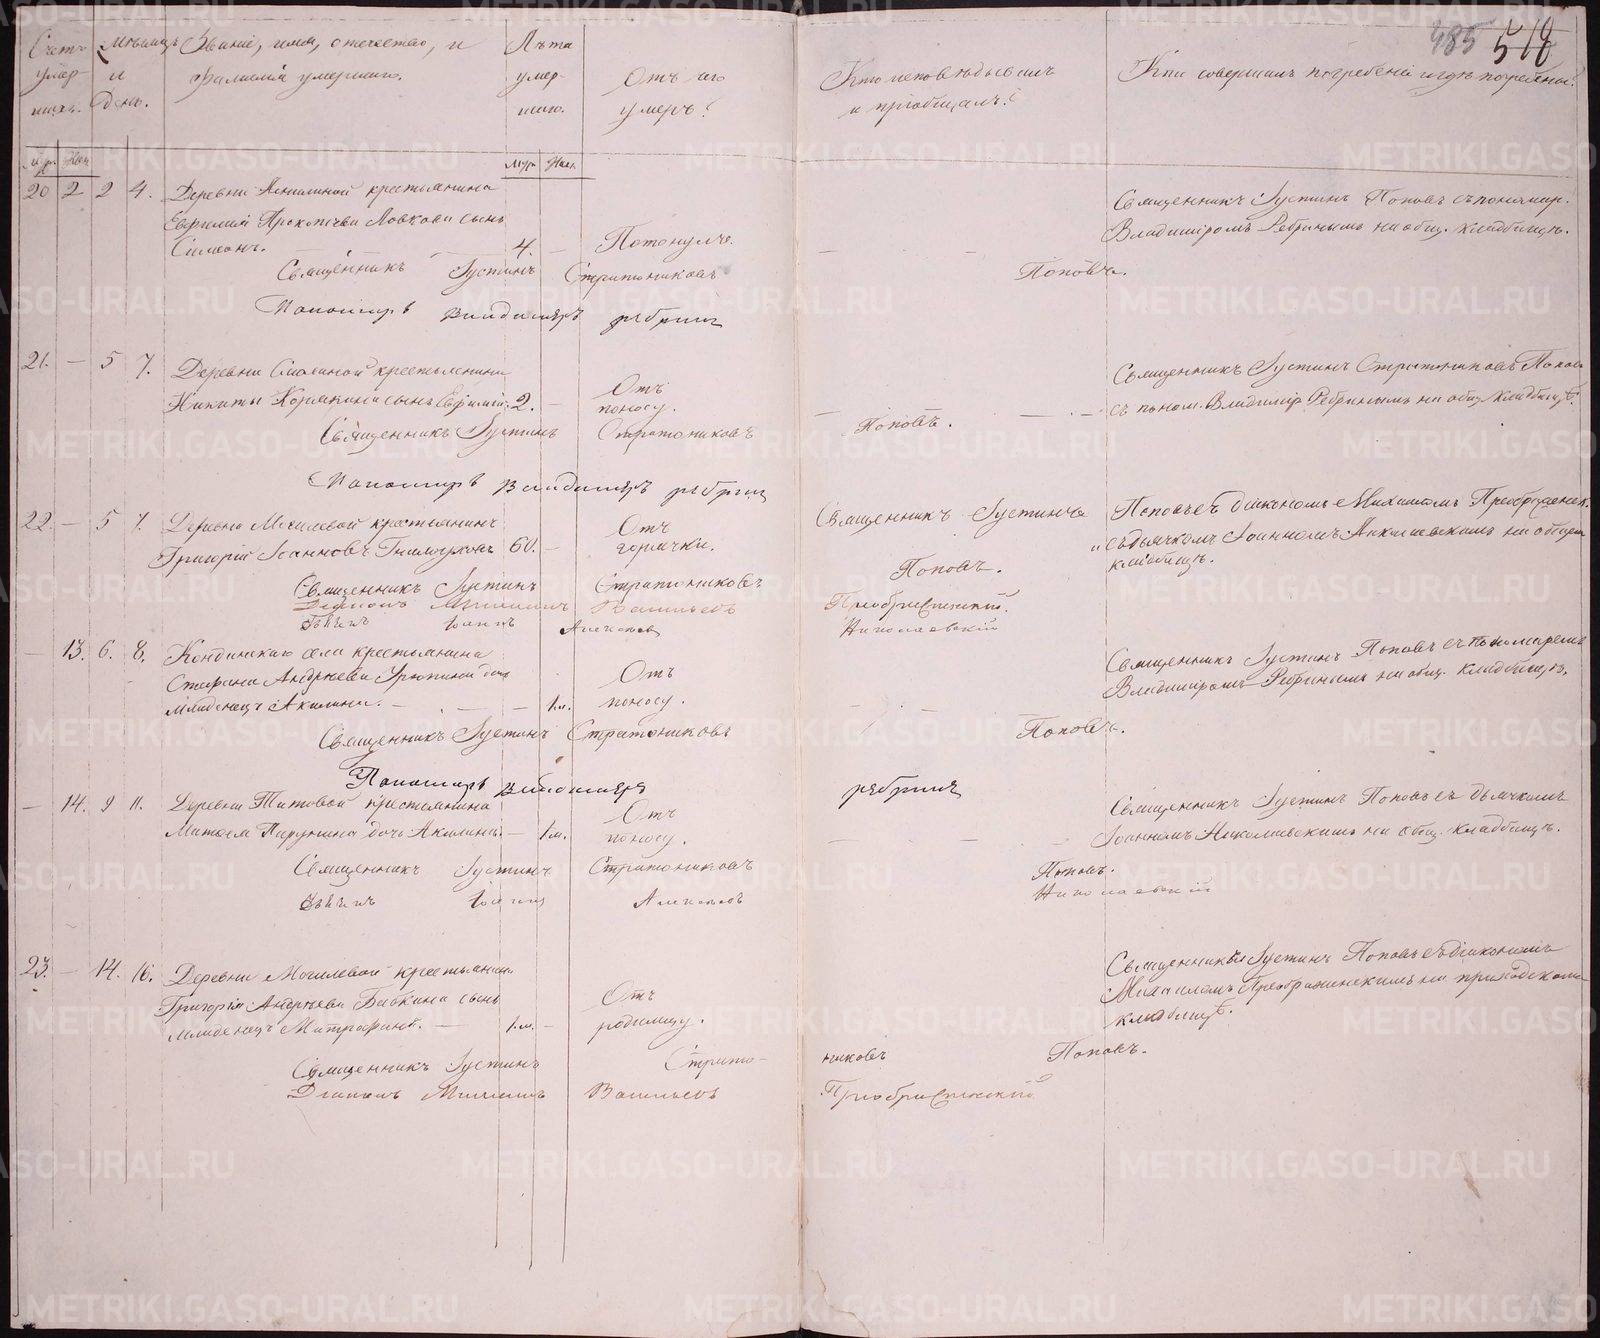 485 518
Счетъ умер- шихъ.
Мѣсяцъ и день.
Званіе, имя, отечество, и фамилія умершаго.
Лѣта умер- шаго.
Отъ чего умеръ?
Кто исповѣдывалъ и пріобщалъ?
Кто совершалъ погребеніе и гдѣ погребены?
Муж. Жен.
Муж. Жен.
20 2 2 4. Деревни крестьянина
Прокопьева сынъ
Симеонъ. — 4. — Потонулъ.
Священникъ Іустинъ Поповъ съ пономар.
Владиміромъ Ребринымъ на общ. кладбищѣ.
Священникъ Іустинъ Стратониковъ Поповъ.
Пономарь Владимиръ Ребринъ
21. — 5 7. Деревни крестьянина
Никиты Корякина сынъ Ефимій. 2. — Отъ поносу.
Священникъ Іустинъ Стратониковъ Поповъ
съ поном. Владимір. Ребринымъ на общ. кладбищѣ.
Священникъ Іустинъ Стратониковъ Поповъ.
Пономарь Владимиръ Ребринъ
22. — 5 7. Деревни Могилевой крестьянинъ
Григорій Іоанновъ 60. — Отъ горячки.
Священникъ Іустинъ
Поповъ съ діакономъ Михаиломъ Преображенск.
и съ дьячкомъ Іоанномъ Николаевскимъ на общем
кладбищѣ.
Священникъ Іустинъ Стратониковъ Поповъ.
Діаконъ Михаилъ Васильевъ Преображенскій.
Дьячекъ Іоаннъ Алексѣевъ Николаевскій
— 13. 6. 8. Кондинскаго села крестьянина
Стефана Андреева дочь
младенецъ Акилина. — 1м. Отъ поносу.
Священникъ Іустинъ Поповъ съ пономаремъ
Владиміромъ Ребринымъ на общ. кладбищѣ.
Священникъ Іустинъ Стратониковъ Поповъ.
Пономарь Владимиръ Ребринъ
— 14. 9 11. Деревни Титовой крестьянина
дочь Акилина. — 1м. Отъ поносу.
Священникъ Іустинъ Поповъ съ дьячкомъ
Іоанномъ Николаевскимъ на общ. кладбищѣ.
Священникъ Іустинъ Стратониковъ Поповъ.
Дьячекъ Іоаннъ Алексѣевъ Николаевскій
23. — 14. 16. Деревни Могилевой крестьянина
Григорія Андреева Бабкина сынъ
младенецъ Митрофанъ. — 1.м. — Отъ родимцу.
Священникъ Іустинъ Поповъ съ діакономъ
Михаиломъ Преображенскимъ на приходскомъ
кладбищѣ.
Священникъ Іустинъ Стратониковъ Поповъ.
Діаконъ Михаилъ Васильевъ Преображенскій
METRIKI.GASO-URAL.RU